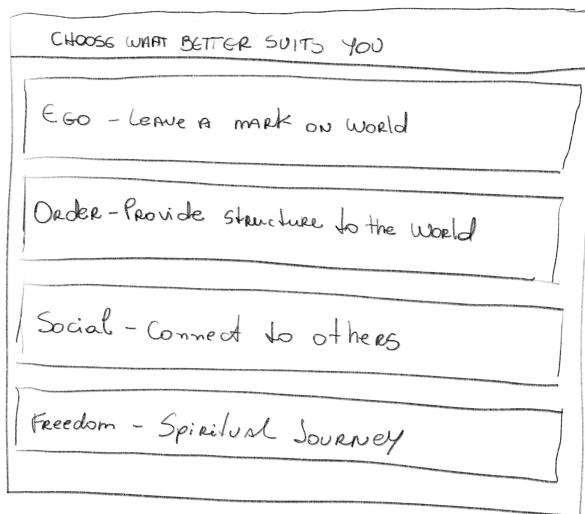 CHOOSE WHAT BETTER SUITS YOU
EGO - Leave a mark on world
Order - Provide structure to the world
Social - Connect to others
Freedom - Spiritual Journey